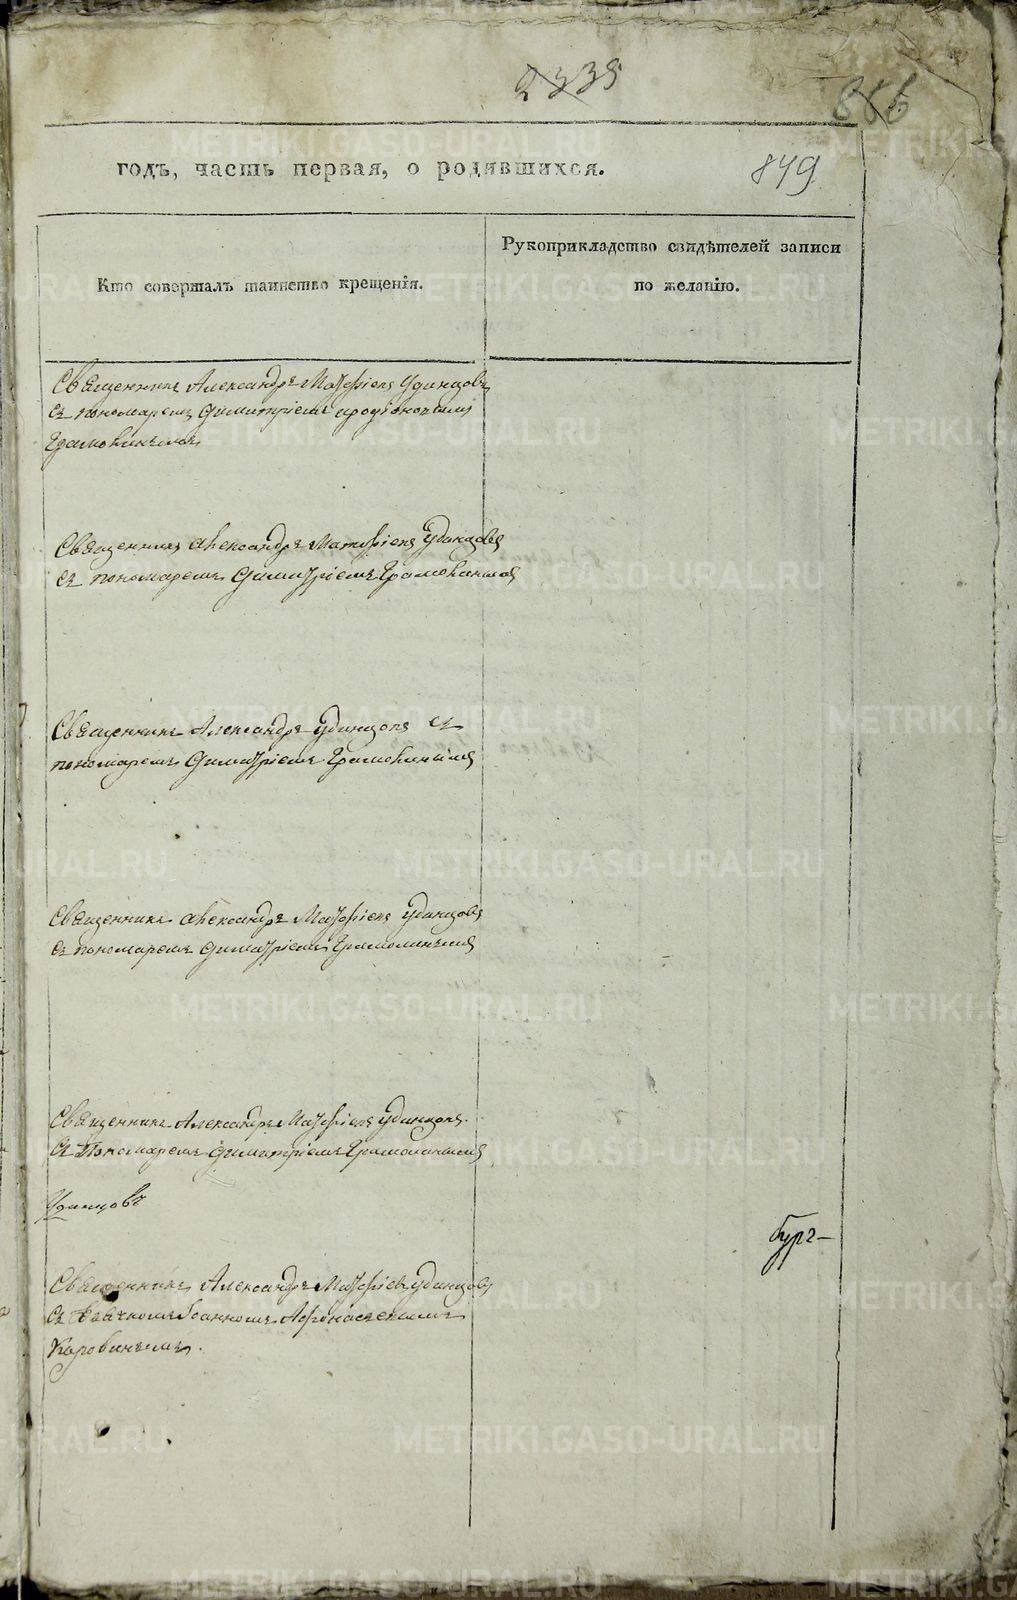 2335
849
годъ, часть первая, о родившихся.
Кто совершалъ таинство крещенія.
Рукоприкладство свидѣтелей записи
по желанію.
Священникъ Александръ Матфіевъ Удинцовъ
съ пономаремъ Димитріемъ
Священникъ Александръ Матфіевъ Удинцовъ
съ пономаремъ Димитріемъ
Священникъ Александръ Удинцовъ съ
пономаремъ Димитріемъ
Священникъ Александръ Матфіевъ Удинцовъ
съ пономаремъ Димитріемъ
Священникъ Александръ Матфіевъ Удинцовъ
съ Пономаремъ Димитріемъ
Удинцовъ
Священникъ Александръ Матфіевъ Удинцовъ
съ Іоанномъ
Коровинымъ.
METRIKI.GASO-URAL.RU